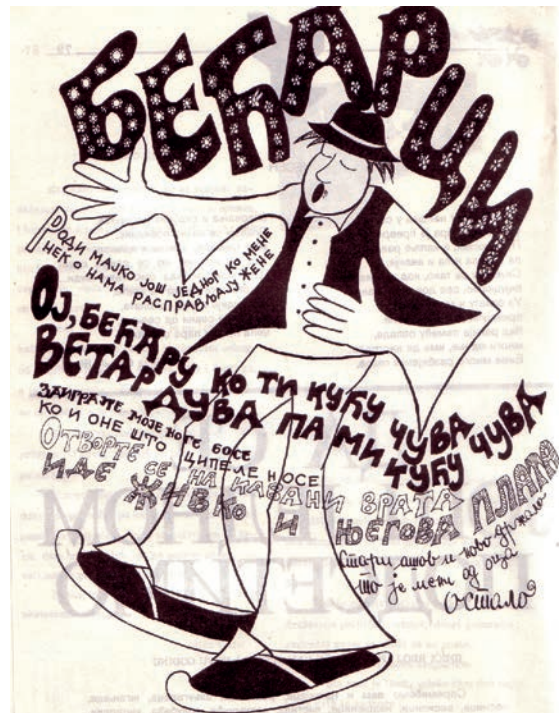 БЕЋАРЦИ
РОДИ МАЈКО ЈОШ ЈЕДНОГ КО МЕНЕ
НЕК О НАМА РАСПРАВЉАЈУ ЖЕНЕ
ОЈ, БЕЋАРУ КО ТИ КУЋУ ЧУВА
ВЕТАР ДУВА ПА МИ КУЋУ ЧУВА
ЗАИГРАЛЕ МОЈЕ НОГЕ БОСЕ
КО И ОНЕ ШТО ЦИПЕЛЕ НОСЕ
ОТВОРТЕ СЕ НА КАВАНИ ВРАТА
ИДЕ ЖИВКО И ЊЕГОВА ПЛАТА
Стари ашов и ново држало
што је мени од оца
остало